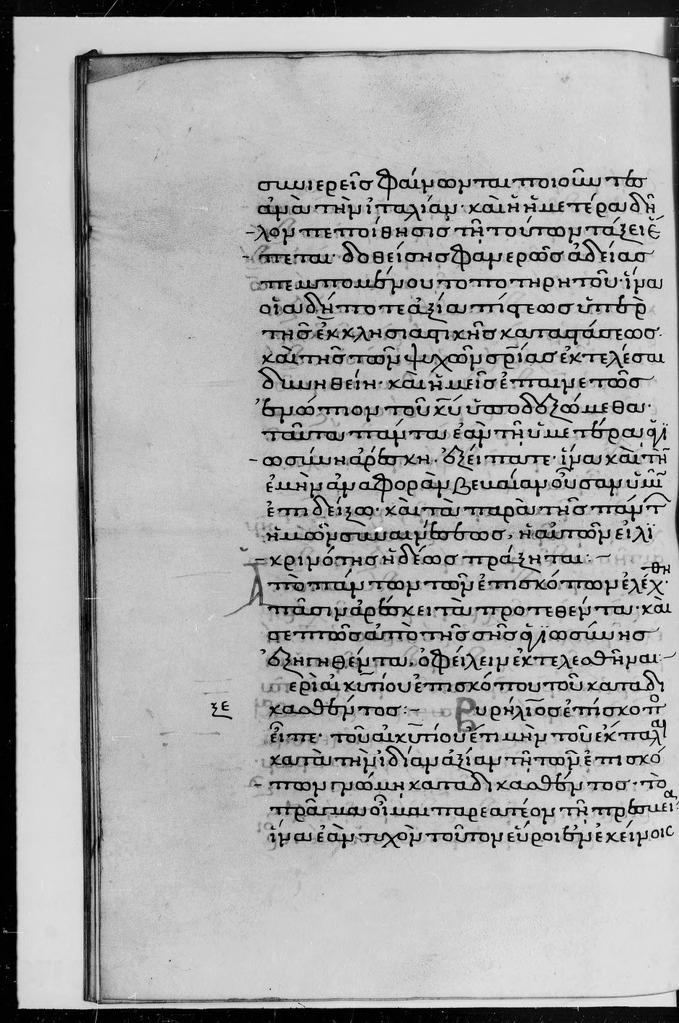 συνιερεῖς φαίνωνται ποιοῦντες
ἀνὰ τὴν ἰταλίαν· καὶ ἡ ἡμετέρα δῆ
λον πεποίθησις τῇ τούτων τάξει ἕ
πεται· δοθείσης φανερῶς ἀδείας
πεμπομένου τοποτηρητοῦ· ἵνα
οἱαδήποτε ἀξία πίστεως ὑπὲρ
τῆς ἐκκλησιαστικῆς καταστάσεως·
καὶ τῆς τῶν ψυχῶν σρίας ἐκτελέσαι
δυνηθείη· καὶ ἡμεῖς ἐπαινετῶς
ἐνώπιον τοῦ κυ ὑποδεξώμεθα·
ταῦτα πάντα ἐὰν τῇ ὑμετέρα ἁγι
ωσύνη ἀρέσκη· ἐξείπατε· ἵνα καὶ τὴν
ἐμὴν ἀναφορὰν βεβαίαν οὖσαν ὑμῖν
ἐπιδείξω· καὶ τὰ παρὰ τῆς πάντων
ἡμῶν συναινέσεως, ἡ αὐτῶν εἰλι
κρινότης ἡδέως πράξηται:–
Ἀπὸ πάντων τῶν ἐπισκόπων ἐλέχθη·
πᾶσιν ἀρέσκει τὰ προτεθέντα· καὶ
σεπτῶς ἀπὸ τῆς σῆς ἁγιωσύνης
ἐξηγηθέντα, ὀφείλειν ἐκτελεσθῆναι:–
ερὶ αἰκυτίου ἐπισκόπου τοῦ καταδι
ξε κασθέντος:– Αυρήλιος ἐπίσκοπος
εἶπε· τοῦ αἰκυτίου ἔτι μὴν τοῦ ἔκπαλαι
κατὰ τὴν ἰδίαν ἀξίαν τῇ τῶν ἐπισκό
πων γνώμη καταδικασθέντος· τὸ
πρᾶγμα οἶμαι παρεατέον τῇ πρεσβεία·
ἵνα ἐὰν τυχὸν τοῦτον εὕροιεν ἐκείνοις